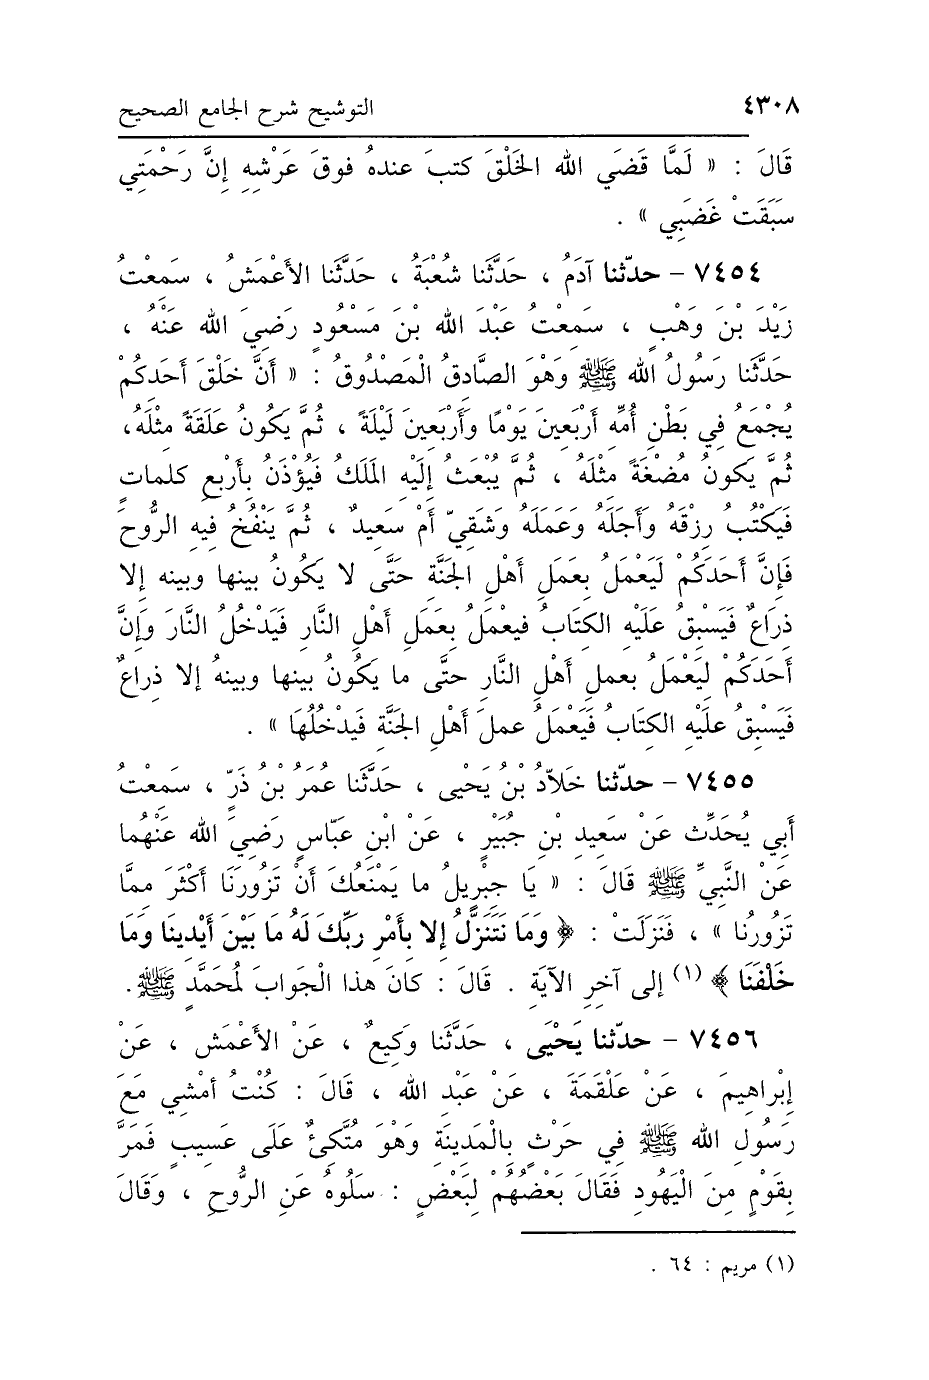 ٤٣٠٨ التوشيح شرح الجامع الصحيح
قَالَ : « لَمَّا قَضَي الله الخَلْقَ كتبَ عندهُ فوقَ عَرْشِهِ إنَّ رَحْمَتِي
سَبَقَتْ غَضَبِي » .
٧٤٥٤ - حدّثنا آدَمُ ، حَدَّثَنا شُعْبَةُ ، حَدَّثَنا الأَعْمَشُ ، سَمعْتُ
زَيْدَ بْنَ وَهْبٍ ، سَمِعْتُ عَبْدَ الله بْنَ مَسْعُودٍ رَضِيَ الله عَنْهُ ،
حَدَّثَنا رَسُولُ الله ﷺ وَهْوَ الصَّادِقُ الْمَصْدُوقُ : « أَنَّ خَلْقَ أَحَدِكُمْ
يُجْمَعُ فِي بَطْنِ أُمِّهِ أَرْبَعِينَ يَوْمًا وَأَرْبَعِينَ لَيْلَةً ، ثُمَّ يَكُونُ عَلَقَةً مِثْلَهُ،
ثُمَّ يَكونُ مُضْغَةً مثْلَهُ ، ثُمَّ يُبْعَثُ إلَيْهِ المَلَكُ فَيُؤْذَنُ بِأَرْبعِ كلمات
فَيَكْتُبُ رِزْقَهُ وَأَجَلَهُ وَعَمَلَهُ وَشَقِيّ أَمْ سَعيدٌ ، ثُمَّ يَنْفُخُ فيه الرُّوحَ
فَإِنَّ أَحَدَكُمْ لَيَعْمَلُ بِعَمَلِ أَهْلِ الجَنَّةِ حَتَّى لا يَكُونُ بينها وبينه إلا
ذِرَاعٌ فَيَسْبِقُ عَلَيْهِ الكتَابُ فيعْمَلُ بِعَمَلِ أَهْلِ النَّارِ فَيَدْخُلُ النَّارَ وَإنَّ
أَحَدَكُمْ لِيَعْمَلُ بعملِ أَهْلِ النَّارِ حتَّى ما يَكُونُ بينها وبينهُ إلا ذِراعٌ
فَيَسْبِقُ علَيْهِ الكِتَابُ فَيَعْمَلُ عملَ أَهْلِ الجَنَّةِ فَيَدْخُلُهَا » .
٧٤٥٥ - حدّثنا خَلاّدُ بْنُ يَحْيى ، حَدَّثَنا عُمَرُ بْنُ ذَرّ ، سَمعْتُ
أَبِي يُحَدِّث عَنْ سَعِيدِ بْنِ جُبَيْرٍ ، عَنْ ابْنِ عَبّاسٍ رَضِيَ الله عَنْهُما
عَنْ النَّبِيِّ ﷺ قَالَ : « يَا جِبْرِيلُ ما يَمْنَعُكَ أَنْ تَزُورَنَا أَكْثَرَ ممَّا
تَزُورُنا » ، فَنَزَلَتْ : ﴿ وَمَا نَتَنَزَّلُ إلا بِأَمْرِ رَبِّكَ لَهُ مَا بَيْنَ أَيْدِينَا وَمَا
خَلْفَنَا ﴾ (١) إلى آخِرِ الآيَةِ . قَالَ : كانَ هذا الْجَوابَ لمُحَمَّدٍ ﷺ.
٧٤٥٦ - حدّثنا يَحْيَى ، حَدَّثَنا وَكِيعٌ ، عَنْ الأَعْمَشِ ، عَنْ
إبْراهِيمَ ، عَنْ عَلْقَمَةَ ، عَنْ عَبْدِ الله ، قَالَ : كُنْتُ أمْشِي مَعَ
رَسُولِ الله ﷺ فِي حَرْثٍ بِالْمَدِينَةِ وَهْوَ مُتَّكِئٌ عَلَى عَسِيبٍ فَمَرَّ
بِقَوْمٍ مِنَ الْيَهُودِ فَقَالَ بَعْضُهُمْ لِبَعْضٍ : سَلُوهُ عَنِ الرُّوحِ ، وَقَالَ
(١) مريم : ٦٤ .